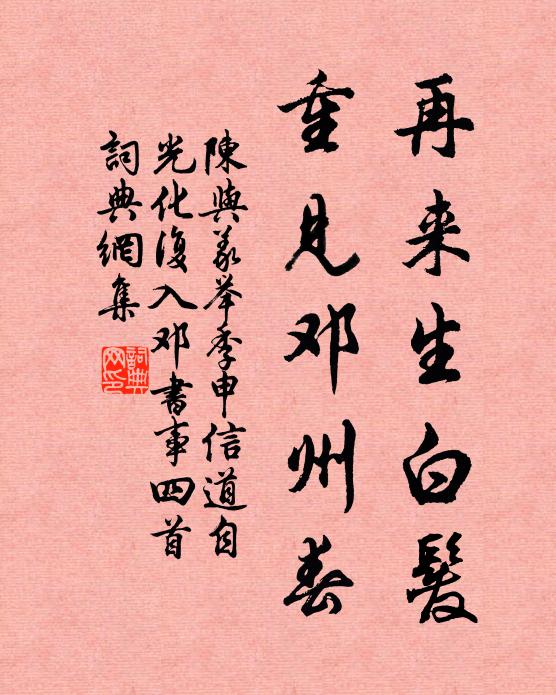 再来生白髮
重見邓州春
陳與義举季申信道自
光化復入邓書事四首
詞典網集
詞典网印